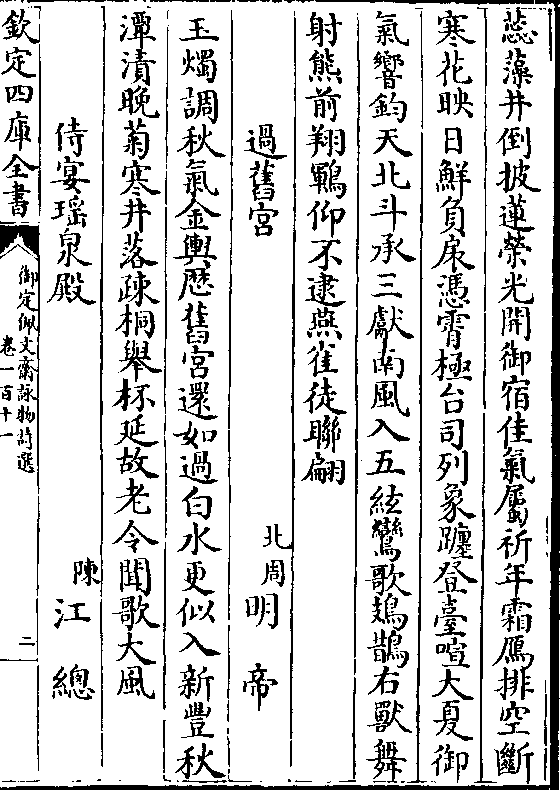 蘂藻井倒披蓮榮光開御宿佳氣屬祈年霜鴈排空斷
寒花映日鮮負扆憑霄極台司列象躔登臺喧大夏御
氣響鈞天北斗承三獻南風入五絃鸞歌鳷鵲右獸舞
射熊前翔鶤仰不逮燕雀徒聯翩
過舊宮
北周明帝
玉燭調秋氣金輿歴舊宮還如過白水更似入新豐秋
潭漬晚菊寒井落疎桐舉杯延故老令聞歌大風
侍宴瑶泉殿
陳江總
欽定四庫全書
御定佩文齋詠物詩選
卷一百十一
二